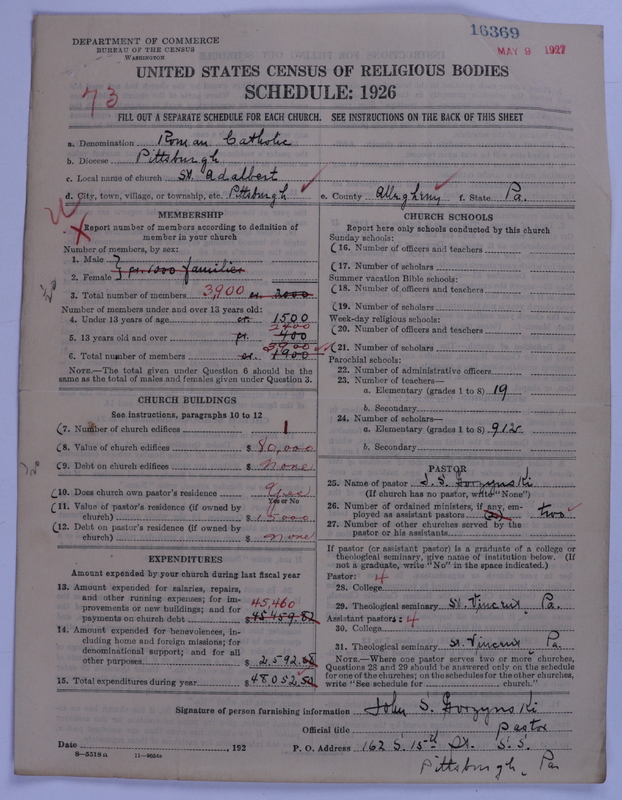 DEPARTMENT OF COMMERCE
BUREAU OF THE CENSUS
WASHINGTON
16369
MAY 9 1927
UNITED STATES CENSUS OF RELIGIOUS BODIES
SCHEDULE: 1926
73
FILL OUT A SEPARATE SCHEDULE FOR EACH CHURCH. SEE INSTRUCTIONS ON THE BACK OF THIS SHEET
a. Denomination Roman Catholic
b. Diocese Pittsburgh
c. Local name of church St. Adalbert
d. City, town, village, or township, etc. Pittsburgh e. County Allegheny f. State Pa.
MEMBERSHIP
Report number of members according to definition of
member in your church
Number of members, by sex:
1. Male
2. Female } pr. 1000 families
3. Total number of members 3,900 or. 2000
Number of members under and over 13 years old:
4. Under 13 years of age or. 1500
2400
5. 13 years old and over pr. 400
3900
6. Total number of members or. 1900
NOTE.—The total given under Question 6 should be the
same as the total of males and females given under Question 3.
CHURCH BUILDINGS
See instructions, paragraphs 10 to 12
7. Number of church edifices 1
8. Value of church edifices $ 80,000
9. Debt on church edifices $ None
10. Does church own pastor's residence Yes
Yes or No
11. Value of pastor's residence (if owned by
church) $ 15000
12. Debt on pastor's residence (if owned by
church) $ None
EXPENDITURES
Amount expended by your church during last fiscal year
13. Amount expended for salaries, repairs,
and other running expenses; for im-
provements or new buildings; and for 45,460
payments on church debt $ 45459.82
14. Amount expended for benevolences, in-
cluding home and foreign missions; for
denominational support; and for all
other purposes $ 2,592.68
15. Total expenditures during year $ 48,052.50
CHURCH SCHOOLS
Report here only schools conducted by this church
Sunday schools:
16. Number of officers and teachers
17. Number of scholars
Summer vacation Bible schools:
18. Number of officers and teachers
19. Number of scholars
Week-day religious schools:
20. Number of officers and teachers
21. Number of scholars
Parochial schools:
22. Number of administrative officers
23. Number of teachers—
a. Elementary (grades 1 to 8) 19
b. Secondary
24. Number of scholars—
a. Elementary (grades 1 to 8) 912
b. Secondary
PASTOR
25. Name of pastor J. S. Gorzynski
(If church has no pastor, write "None")
26. Number of ordained ministers, if any, em-
ployed as assistant pastors two
27. Number of other churches served by the
pastor or his assistants
If pastor (or assistant pastor) is a graduate of a college or
theological seminary, give name of institution below. (If
not a graduate, write "No" in the space indicated.)
Pastor: 4
28. College
29. Theological seminary St. Vincent, Pa.
Assistant pastors: 4
30. College
31. Theological seminary St. Vincent Pa
NOTE.—Where one pastor serves two or more churches,
Questions 28 and 29 should be answered only on the schedule
for one of the churches; on the schedules for the other churches,
write "See schedule for church."
Signature of person furnishing information John S. Gorzynski
Official title pastor
Date , 192 P. O. Address 162 S. 15th St. S. S.
8—5518a 11—9054a
Pittsburgh, Pa